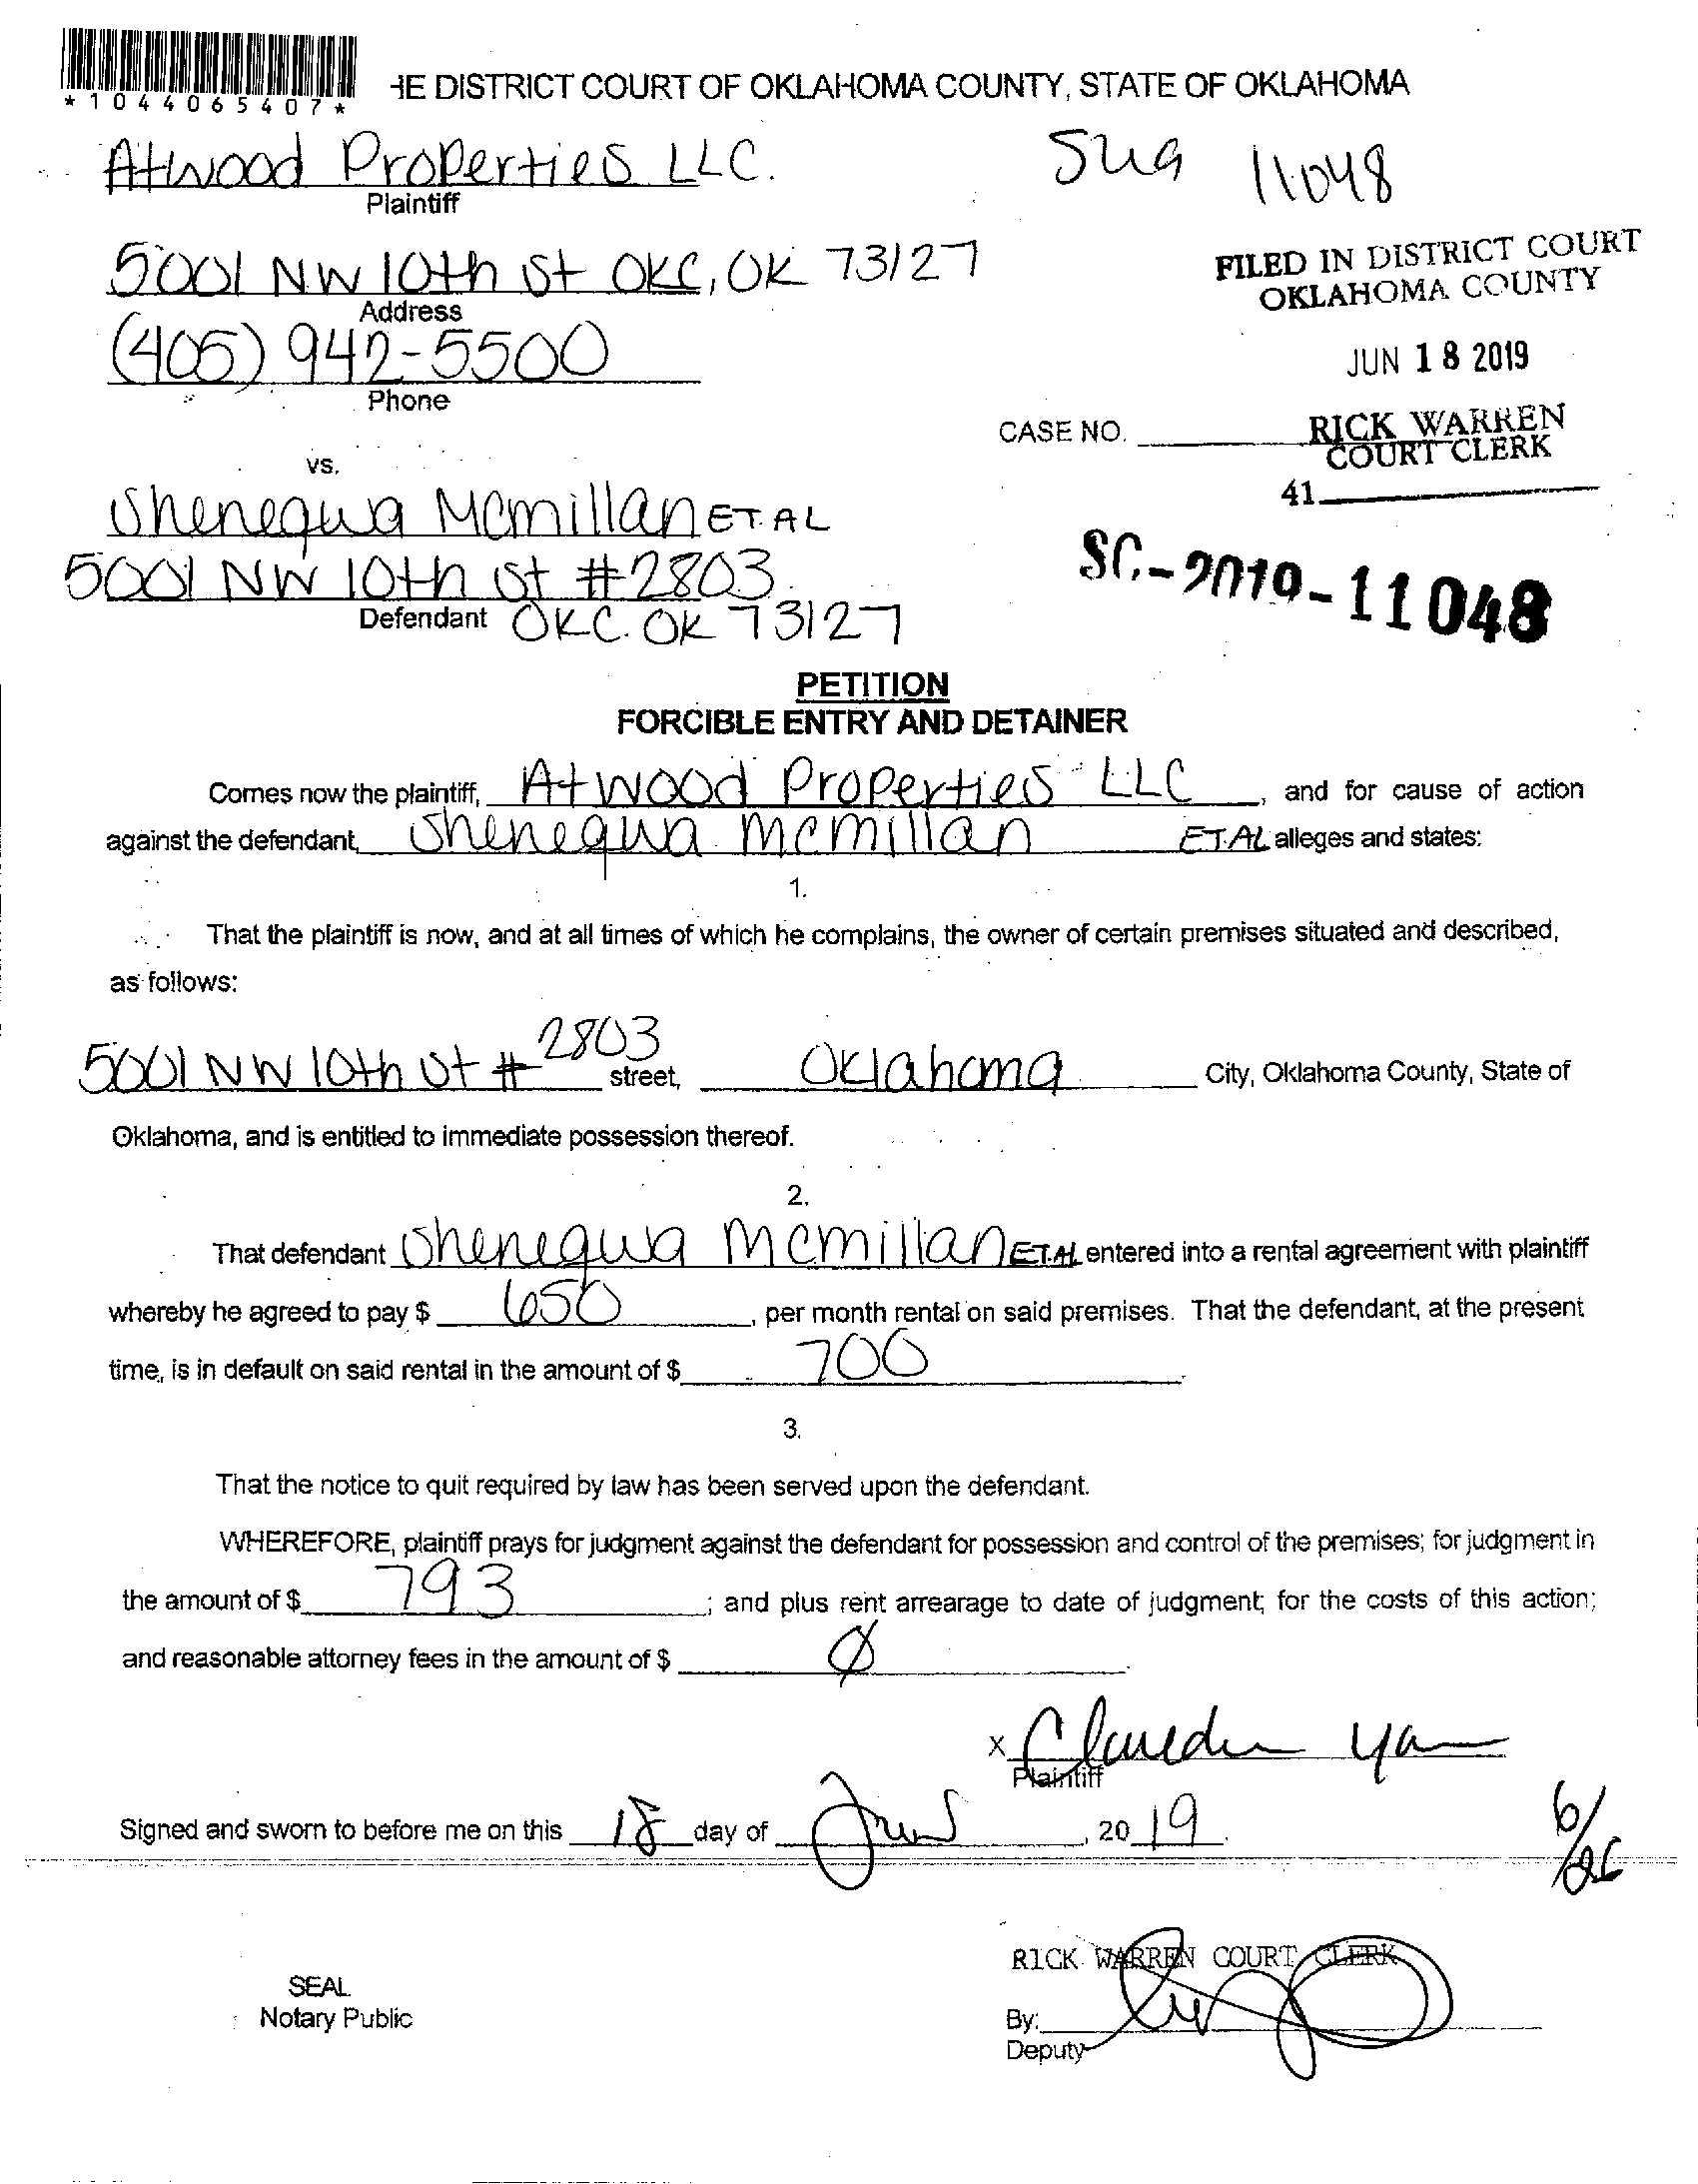 *1044065407*
HE DISTRICT COURT OF OKLAHOMA COUNTY, STATE OF OKLAHOMA
Atwood Properties LLC.
Plaintiff
11048
5001 NW 10th St OKC, OK 73127
Address
FILED IN DISTRICT COURT
OKLAHOMA COUNTY
(405) 942-5500
Phone
JUN 18 2019
CASE NO.
RICK WARREN
COURT CLERK
41
vs.
Shenequa Mcmillan ET. AL
5001 NW 10th St #2803
Defendant OKC. OK 73127
SC-2019-11048
PETITION
FORCIBLE ENTRY AND DETAINER
Comes now the plaintiff, Atwood Properties LLC, and for cause of action
against the defendant, Shenequa mcmillan ET.AL alleges and states:
1.
That the plaintiff is now, and at all times of which he complains, the owner of certain premises situated and described,
as follows:
5001 NW 10th St # 2803 street, Oklahoma City, Oklahoma County, State of
Oklahoma, and is entitled to immediate possession thereof.
2.
That defendant Shenequa mcmillan ET.AL entered into a rental agreement with plaintiff
whereby he agreed to pay $ 650, per month rental on said premises. That the defendant, at the present
time, is in default on said rental in the amount of $ 700.
3.
That the notice to quit required by law has been served upon the defendant.
WHEREFORE, plaintiff prays for judgment against the defendant for possession and control of the premises; for judgment in
the amount of $ 793; and plus rent arrearage to date of judgment; for the costs of this action;
and reasonable attorney fees in the amount of $ Ø.
X
Plaintiff
Signed and sworn to before me on this 18 day of June, 2019.
6/26
RICK WARREN COURT CLERK
SEAL
Notary Public
By:
Deputy